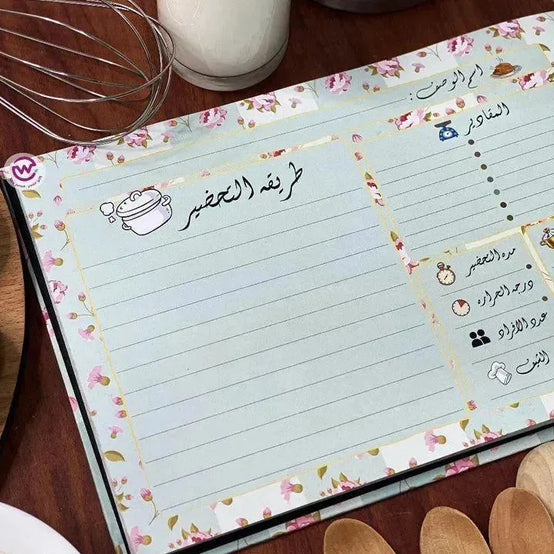 اسم الوصف :
المقادير
طريقه التحضير
مده التحضير
درجه الحراره
عدد الافراد
الشيف